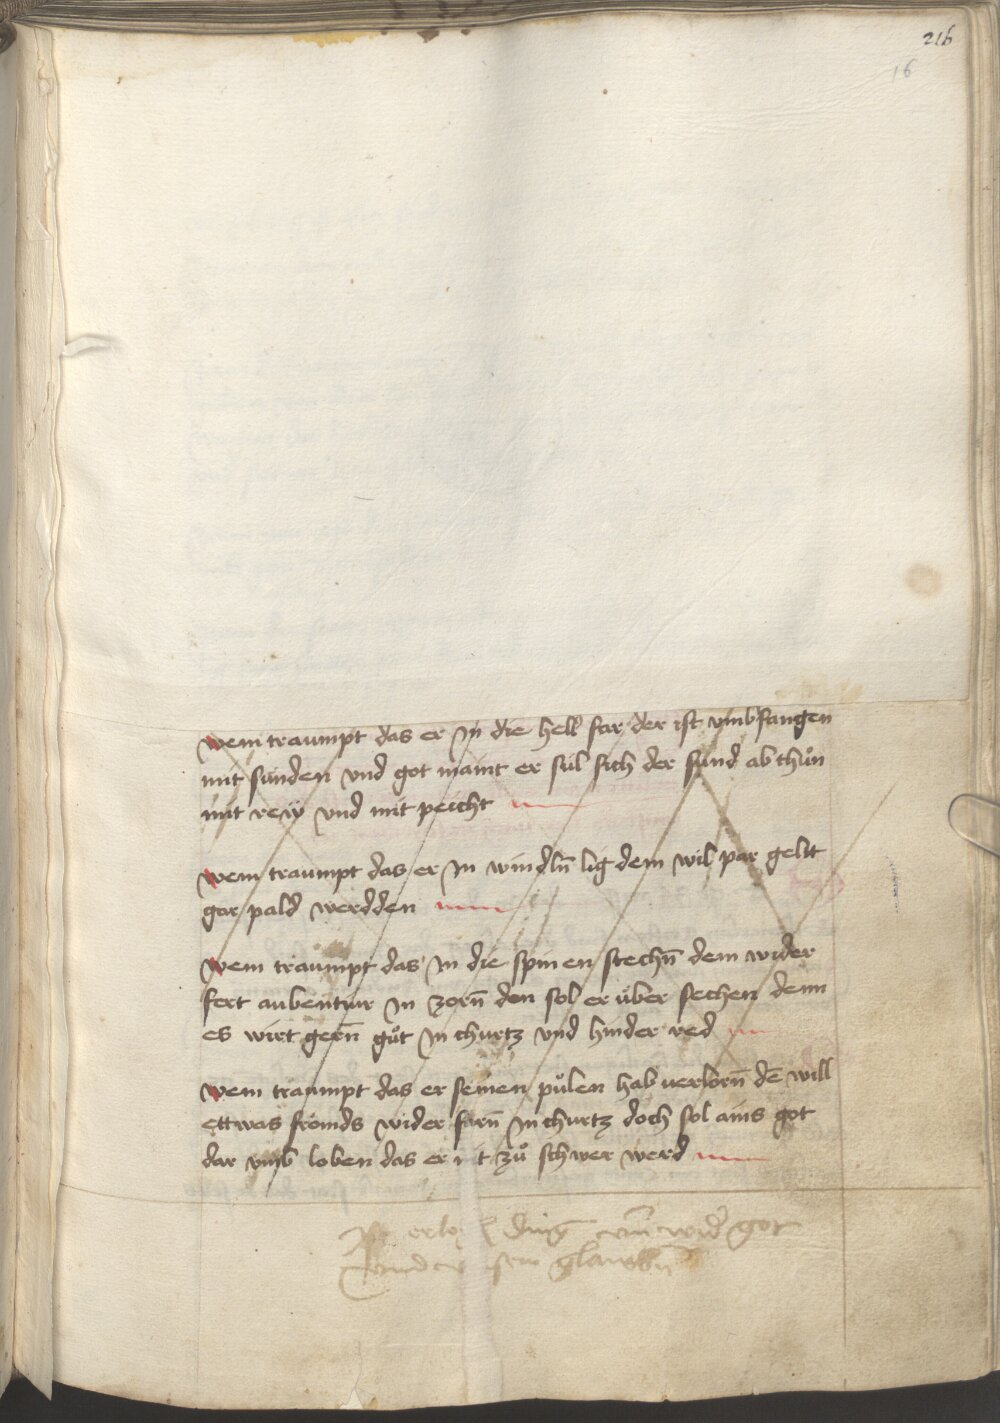 216
16
wem traumpt das er In die hell far der ist vmbfangen
mit sunden vnd got maint er sül sich der sund ab thůn
mit reẅ vnd mit peicht
wem traumpt das er In windln̄ lig dem wil par geltt
gar pald werdden
wem traumpt das In die spinen stechn̄ dem wider
fert aubentiur In zorn̄ den sol er ůber sechen denn
es wirt gern̄ gůt In churtz vnd hinder red
wem traumpt das er seinen půlen hab uerlorn̄ dē will
ettwas fromds wider farn̄ In churtz doch sol ains got
dar vmb loben das er t zů schwer werd
ding wid got
glawbn̄